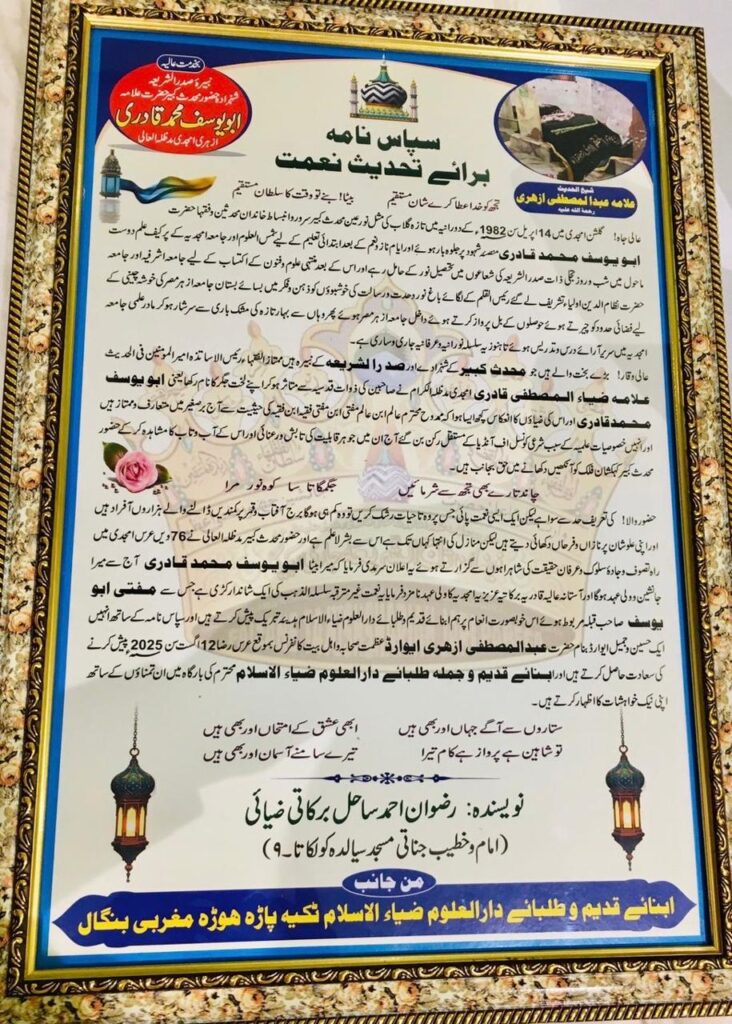 بخدمت عالیہ
نبیرۂ صدرالشریعہ
شہزادۂ حضور محدث کبیر حضرت علامہ
ابو یوسف محمد قادری
ازہری امجدی مدظلہ العالی
سپاس نامہ
برائے تحدیث نعمت
شیخ الحدیث
علامہ عبدالمصطفیٰ ازهری
رحمۃ اللہ علیہ
تجھ کو خدا عطا کرے شان مستقیم بیٹا! بنے تو وقت کا سلطان مستقیم
عالی جاہ! گلشن امجدی میں 14 اپریل سن 1982ء کے دورانیہ میں تازہ گلاب کی مثل نور عین محدث کبیر سرور وانبساط خاندان محدثین وفقہا حضرت
ابو یوسف محمد قادری منصۂ شہود پر جلوہ بار ہوئے اور ایام ناز ونعم کے بعد ابتدائی تعلیم کے لیے شمس العلوم اور جامعہ امجدیہ کے پر کیف علم دوست
ماحول میں شب و روز تجلی ذات صدرالشریعہ کی شعاعوں میں تحصیل نور کے حامل رہے اور اس کے بعد منتہی علوم وفنون کے اکتساب کے لیے جامعہ اشرفیہ اور جامعہ
حضرت نظام الدین اولیاء تشریف لے گئے رئیس القلم کے لگائے باغ نور وحدت ورسالت کی خوشبوؤں کو ذہن وفکر میں بسائے بستان جامعہ ازہر مصر کی خوشہ چینی کے
لیے فضائی حدود کو چیرتے ہوئے حوصلوں کے بل پرواز کرتے ہوئے داخل جامعہ ازہر مصر ہوئے پھر وہاں سے بہار تازہ کی مشک باری سے سرشار ہو کر مادر علمی جامعہ
امجدیہ میں سریر آرائے درس وتدریس ہوئے تا ہنوز یہ سلسلہ نورانیہ وعرفانیہ جاری وساری ہے۔
عالی وقار! بڑے بخت والے ہیں جو محدث کبیر کے شہزادے اور صدرالشریعہ کے نبیرہ ہیں ممتاز الفقہاء رئیس الاساتذہ امیر المومنین فی الحدیث
علامہ ضیاء المصطفی قادری امجدی مدظلہ الکرام نے صاحبین کی ذوات قدسیہ سے متاثر ہو کر اپنے لخت جگر کا نام رکھا یعنی ابو یوسف
محمد قادری اور اس کی ضیاؤں کا انعکاس کچھ ایسا ہوا کہ ممدوح محترم عالم ابن عالم مفتی ابن مفتی فقیہ ابن فقیہ کی حیثیت سے آج برصغیر میں متعارف وممتاز ہیں
اور انہیں خصوصیات علمیہ کے سبب شرعی کونسل آف انڈیا کے مستقل رکن بن گئے آج ان میں جوہر قابلیت کی تابش و رعنائی اور اس کے آب وتاب کا مشاہدہ کر کے حضور
محدث کبیر کہکشان فلک کو آنکھیں دکھانے میں حق بجانب ہیں۔
چاند تارے بھی تجھ سے شرمائیں جگمگاتا سا کوہ نور مرا
حضور والا! کی تعریف حد سے سوا ہے لیکن ایک ایسی نعمت پائی جس پر وہ تا حیات رشک کریں تو وہ کم ہی ہوگا برج آفتاب و قمر پر کمندیں ڈالنے والے ہزاروں افراد ہیں
اور اپنی علو شان پر نازاں وفرحاں دکھائی دیتے ہیں لیکن منازل کی انتہا کہاں تک ہے اس سے بشر لاعلم ہے اور حضور محدث کبیر مدظلہ العالی نے 76 ویں عرس امجدی میں
راہ تصوف وجادۂ سلوک وعرفان حقیقت کی شاہراہوں سے گزارتے ہوئے یہ اعلان سرمدی فرمایا کہ میرا بیٹا ابو یوسف محمد قادری آج سے میرا
جانشین و ولی عہد ہوگا اور آستانہ عالیہ قادریہ برکاتیہ عزیزیہ امجدیہ کا ولی عہد نامزد فرمایا یہ نعمت غیر مترقبہ سلسلۃ الذہب کی ایک شاندار کڑی ہے جس سے مفتی ابو
یوسف صاحب قبلہ مربوط ہوئے اس خوبصورت انعام پر ہم ابنائے قدیم وطلبائے دارالعلوم ضیاء الاسلام ہدیۂ تبریک پیش کرتے ہیں اور سپاس نامہ کے ساتھ انہیں
ایک حسین وجمیل ایوارڈ بنام حضرت عبدالمصطفیٰ ازهری ایوارڈ عظمت صحابہ واہل بیت کانفرنس بموقع عرس رضا 12 اگست سن 2025 پیش کرنے
کی سعادت حاصل کرتے ہیں اور ابنائے قدیم و جملہ طلبائے دارالعلوم ضیاء الاسلام محترم کی بارگاہ میں ان تمناؤں کے ساتھ
اپنی نیک خواہشات کا اظہار کرتے ہیں۔
ستاروں سے آگے جہاں اور بھی ہیں ابھی عشق کے امتحاں اور بھی ہیں
تو شاہین ہے پرواز ہے کام تیرا تیرے سامنے آسماں اور بھی ہیں
نویسندہ: رضوان احمد ساحل برکاتی ضیائی
(امام و خطیب جناتی مسجد سیالدہ کولکاتا۔۹)
من جانب
ابنائے قدیم و طلبائے دارالعلوم ضیاء الاسلام ٹکیہ پاڑہ ہوڑہ مغربی بنگال